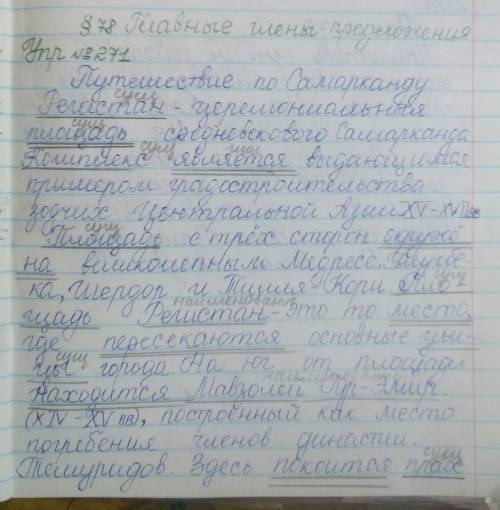 § 78 Главные члены предложения
Упр №271
Путешествие по Самарканду
сущ
Регистан - церемониальная
сущ
площадь средневекового Самарканда
сущ глаг
Комплекс является выдающимся
примером градостроительства
зодчих Центральной Азии XV-XVII вв
сущ
Площадь с трёх сторон окруже
на великолепным Медресе. Улугбе-
ка, Шердор и Тилля Кори Пло
сущ
наименование
щадь Регистан - это то место,
где пересекаются основные ули-
сущ
цы города. На юг от площади
наименование
находится Мавзолей Гур-Эмир.
(XIV-XV вв), построенный как место
погребения членов династии.
сущ
Темуридов. Здесь покоится прах